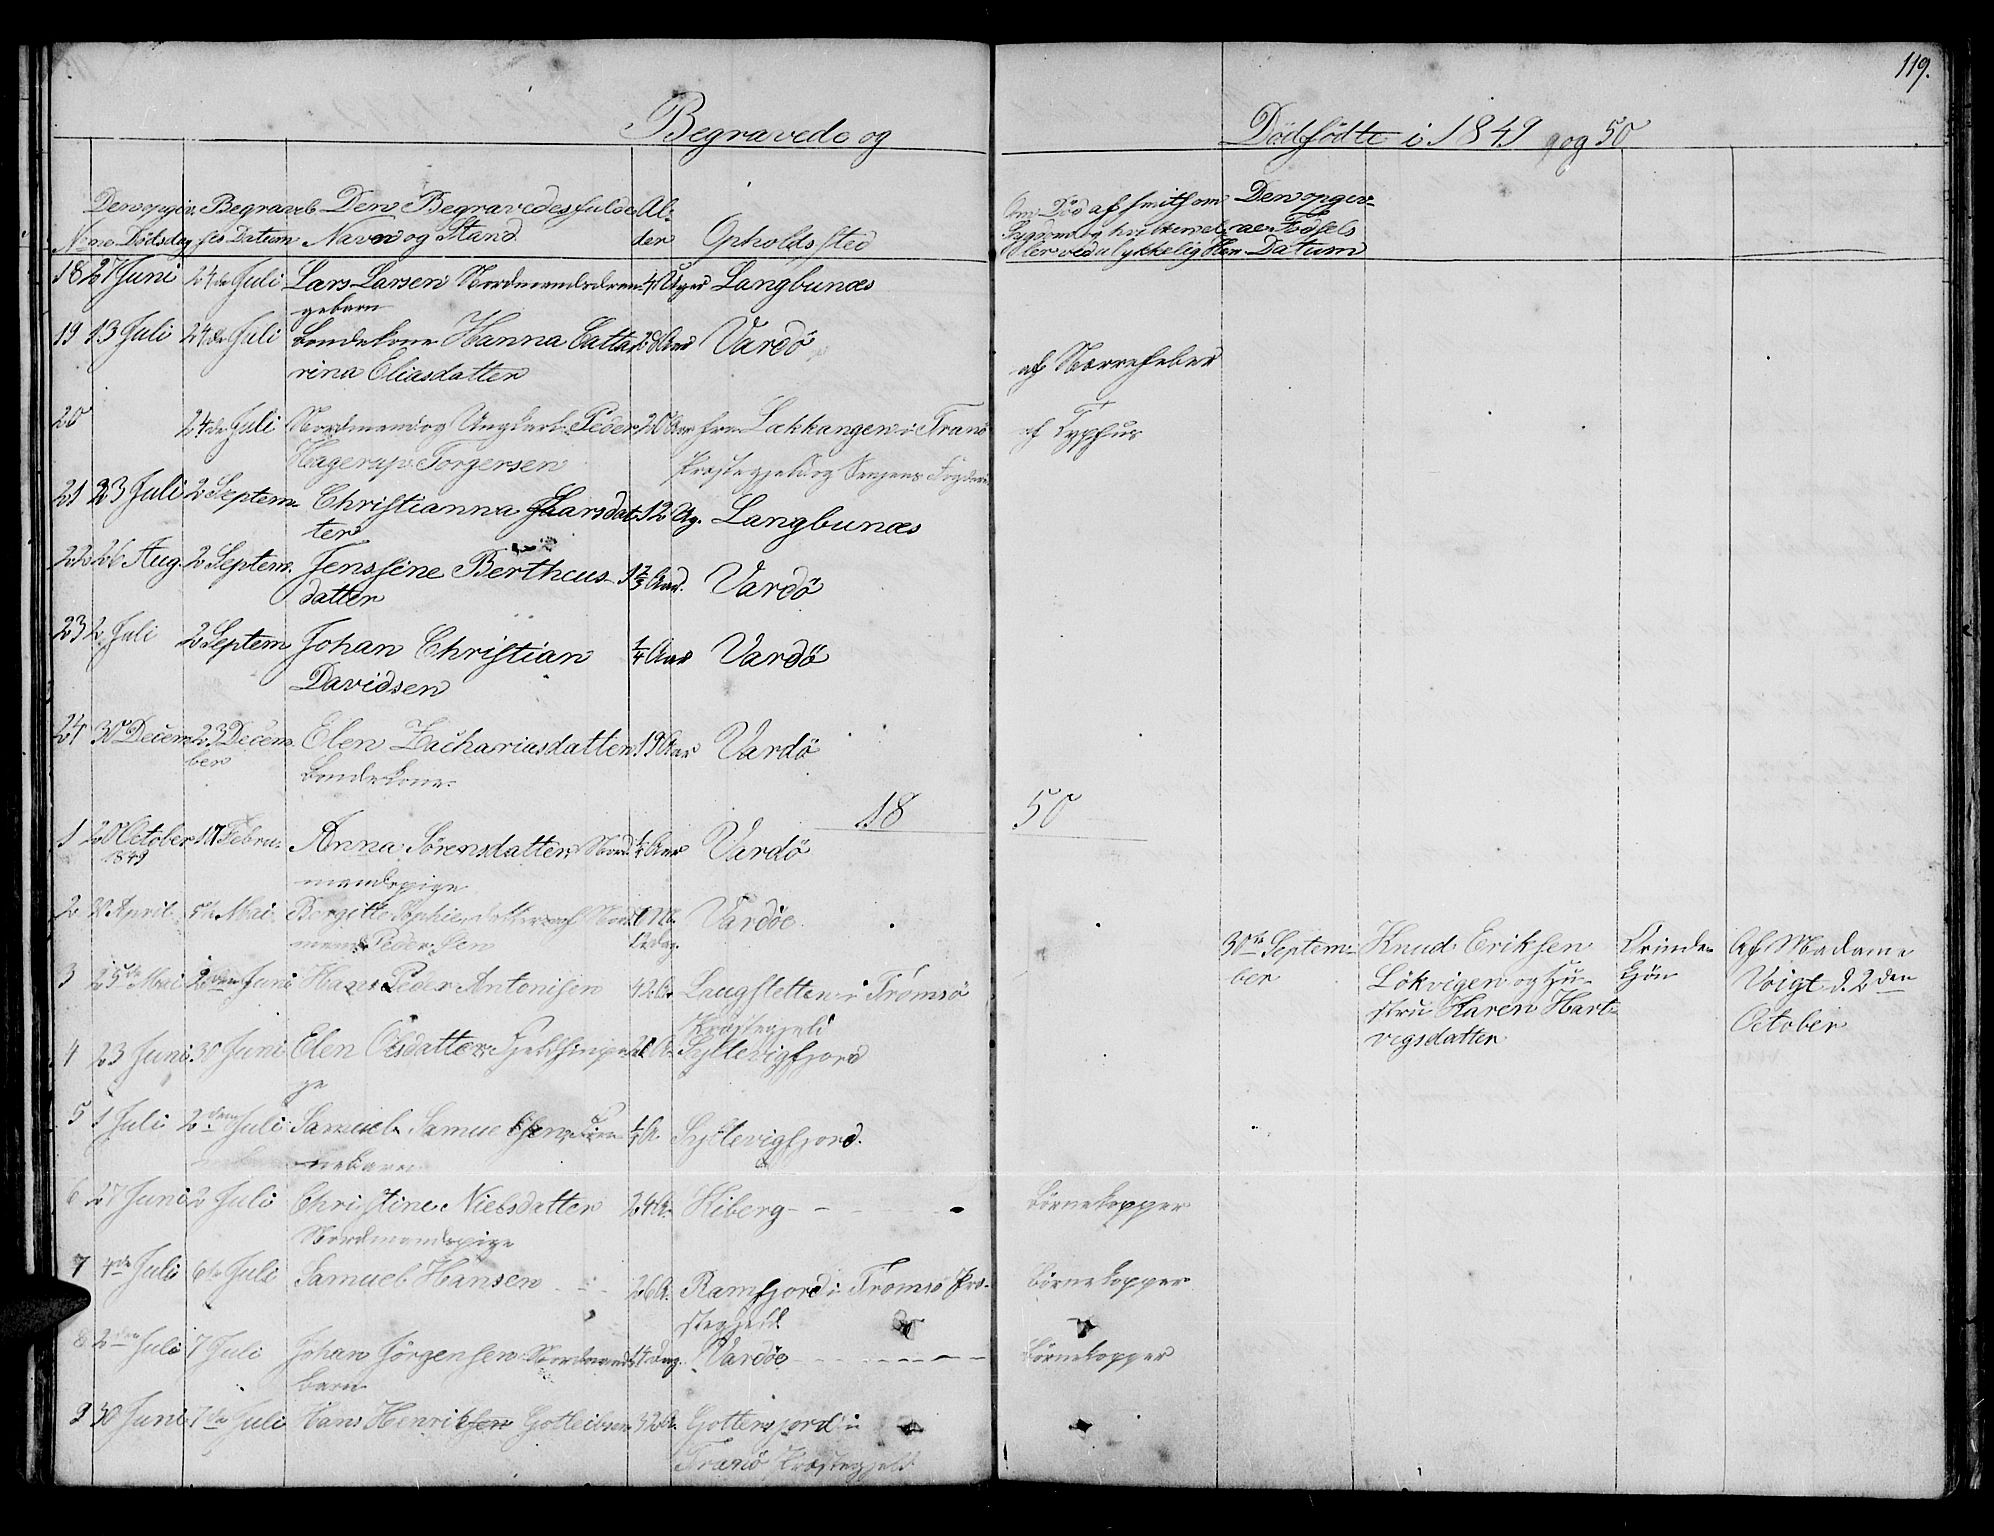 119.
Begravede og Dødfødte i 1849 og 50
No Den opgivne Dødsdag Begravelses Datum Den Begravedes fulde Navn og Stand Alder Opholdssted Den opgivne Fødsels Datum
18 27 Juni 24de Juli Lars Larsen Nordmandsdrengebarn 4 Uger Langbunæs
19 13 Juli 24de Juli Bondekone Hanna Cattarina Eliasdatter Aar Vardö af Nervefeber
20 24de Juli Nordmand og Ungkarl Peder Hagerup Torgersen 20 Aar fra Lakkangen i Tranö Præstegjeld og Senjens Fogderi af Typhus
21 23 Juli 2 Septem. Christianna Larsdatter 12 Ug. Langbunæs
22 26 Aug. 2 Septem. Jenssine Bertheusdatter 1 2/3 Aar. Vardö
23 2 Juli 2 Septem Johan Christian Davidsen 1/4 Aar Vardö
24 30 Decem 23 December Elen Zachariasdatter Bondekone 19 Aar Vardö
18 50
1 20 October 1849 17 Febru. Anna Sörensdatter Nordmandspige 1/4 Aar Vardö
2 April 5te Mai Bergitte Sophie datter af Nordmand Peder Vardöe
30te September Knud Eriksen Lökvigen og Hustru Karen Hartvigsdatter Qvindekjön Af Madame Voigt d. 2den October
3 25de Mai 2den Juni Hans Peder Antonisen 42 A. Laugsletten i Tromsö Præstegjeld
4 23 Juni 30 Juni Elen Olsdatter Fjeldfinpige A. Syltevigfjord
5 1 Juli 2den Juli Samuel Samuelsen Finnebarn 1/4 A. Syltevigfjord.
6 27 Juni 2 Juli Christine Nielsdatter Nordmandspige 24 A. Kiberg - - - Börnekopper
7 4de Juli 6te Juli Samuel Hansen 26 A. Ramfjord i Tromsö Præstegjeld Börnekopper
8 2den Juli 7 Juli Johan Jörgensen Nordmandsbarn 14 Dag. Vardöe - - - Börnekopper
9 30 Juni 7de Juli Hans Henriksen Gotleibsen 32 A. Gottesjord i Tranö Præstegjeld